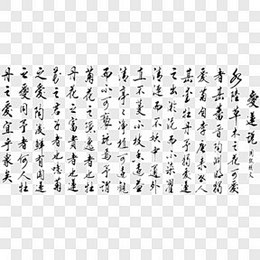 愛蓮說
水陸草木之花可愛
者甚蕃晉陶淵明獨
愛菊自李唐來世人
甚愛牡丹予獨愛蓮
之出於泥而不染濯
清漣而不妖中通外
直不蔓不枝香遠益
清亭亭淨植可遠觀
而不可褻玩焉予謂
菊花之隱逸者也牡
丹花之富貴者也蓮
花之君子者也噫菊
之愛陶後鮮有聞蓮
之愛同予者何人牡
丹之愛宜乎眾矣